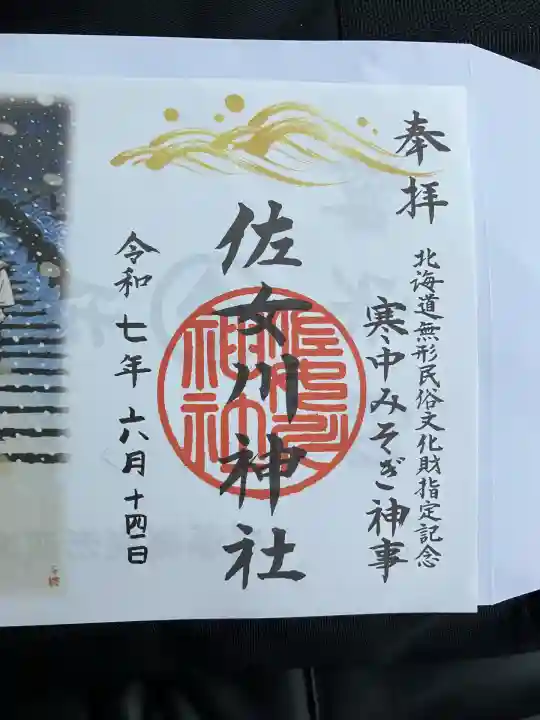 奉拝
北海道無形民俗文化財指定記念
寒中みそぎ神事
佐女川神社
令和七年 六月十四日